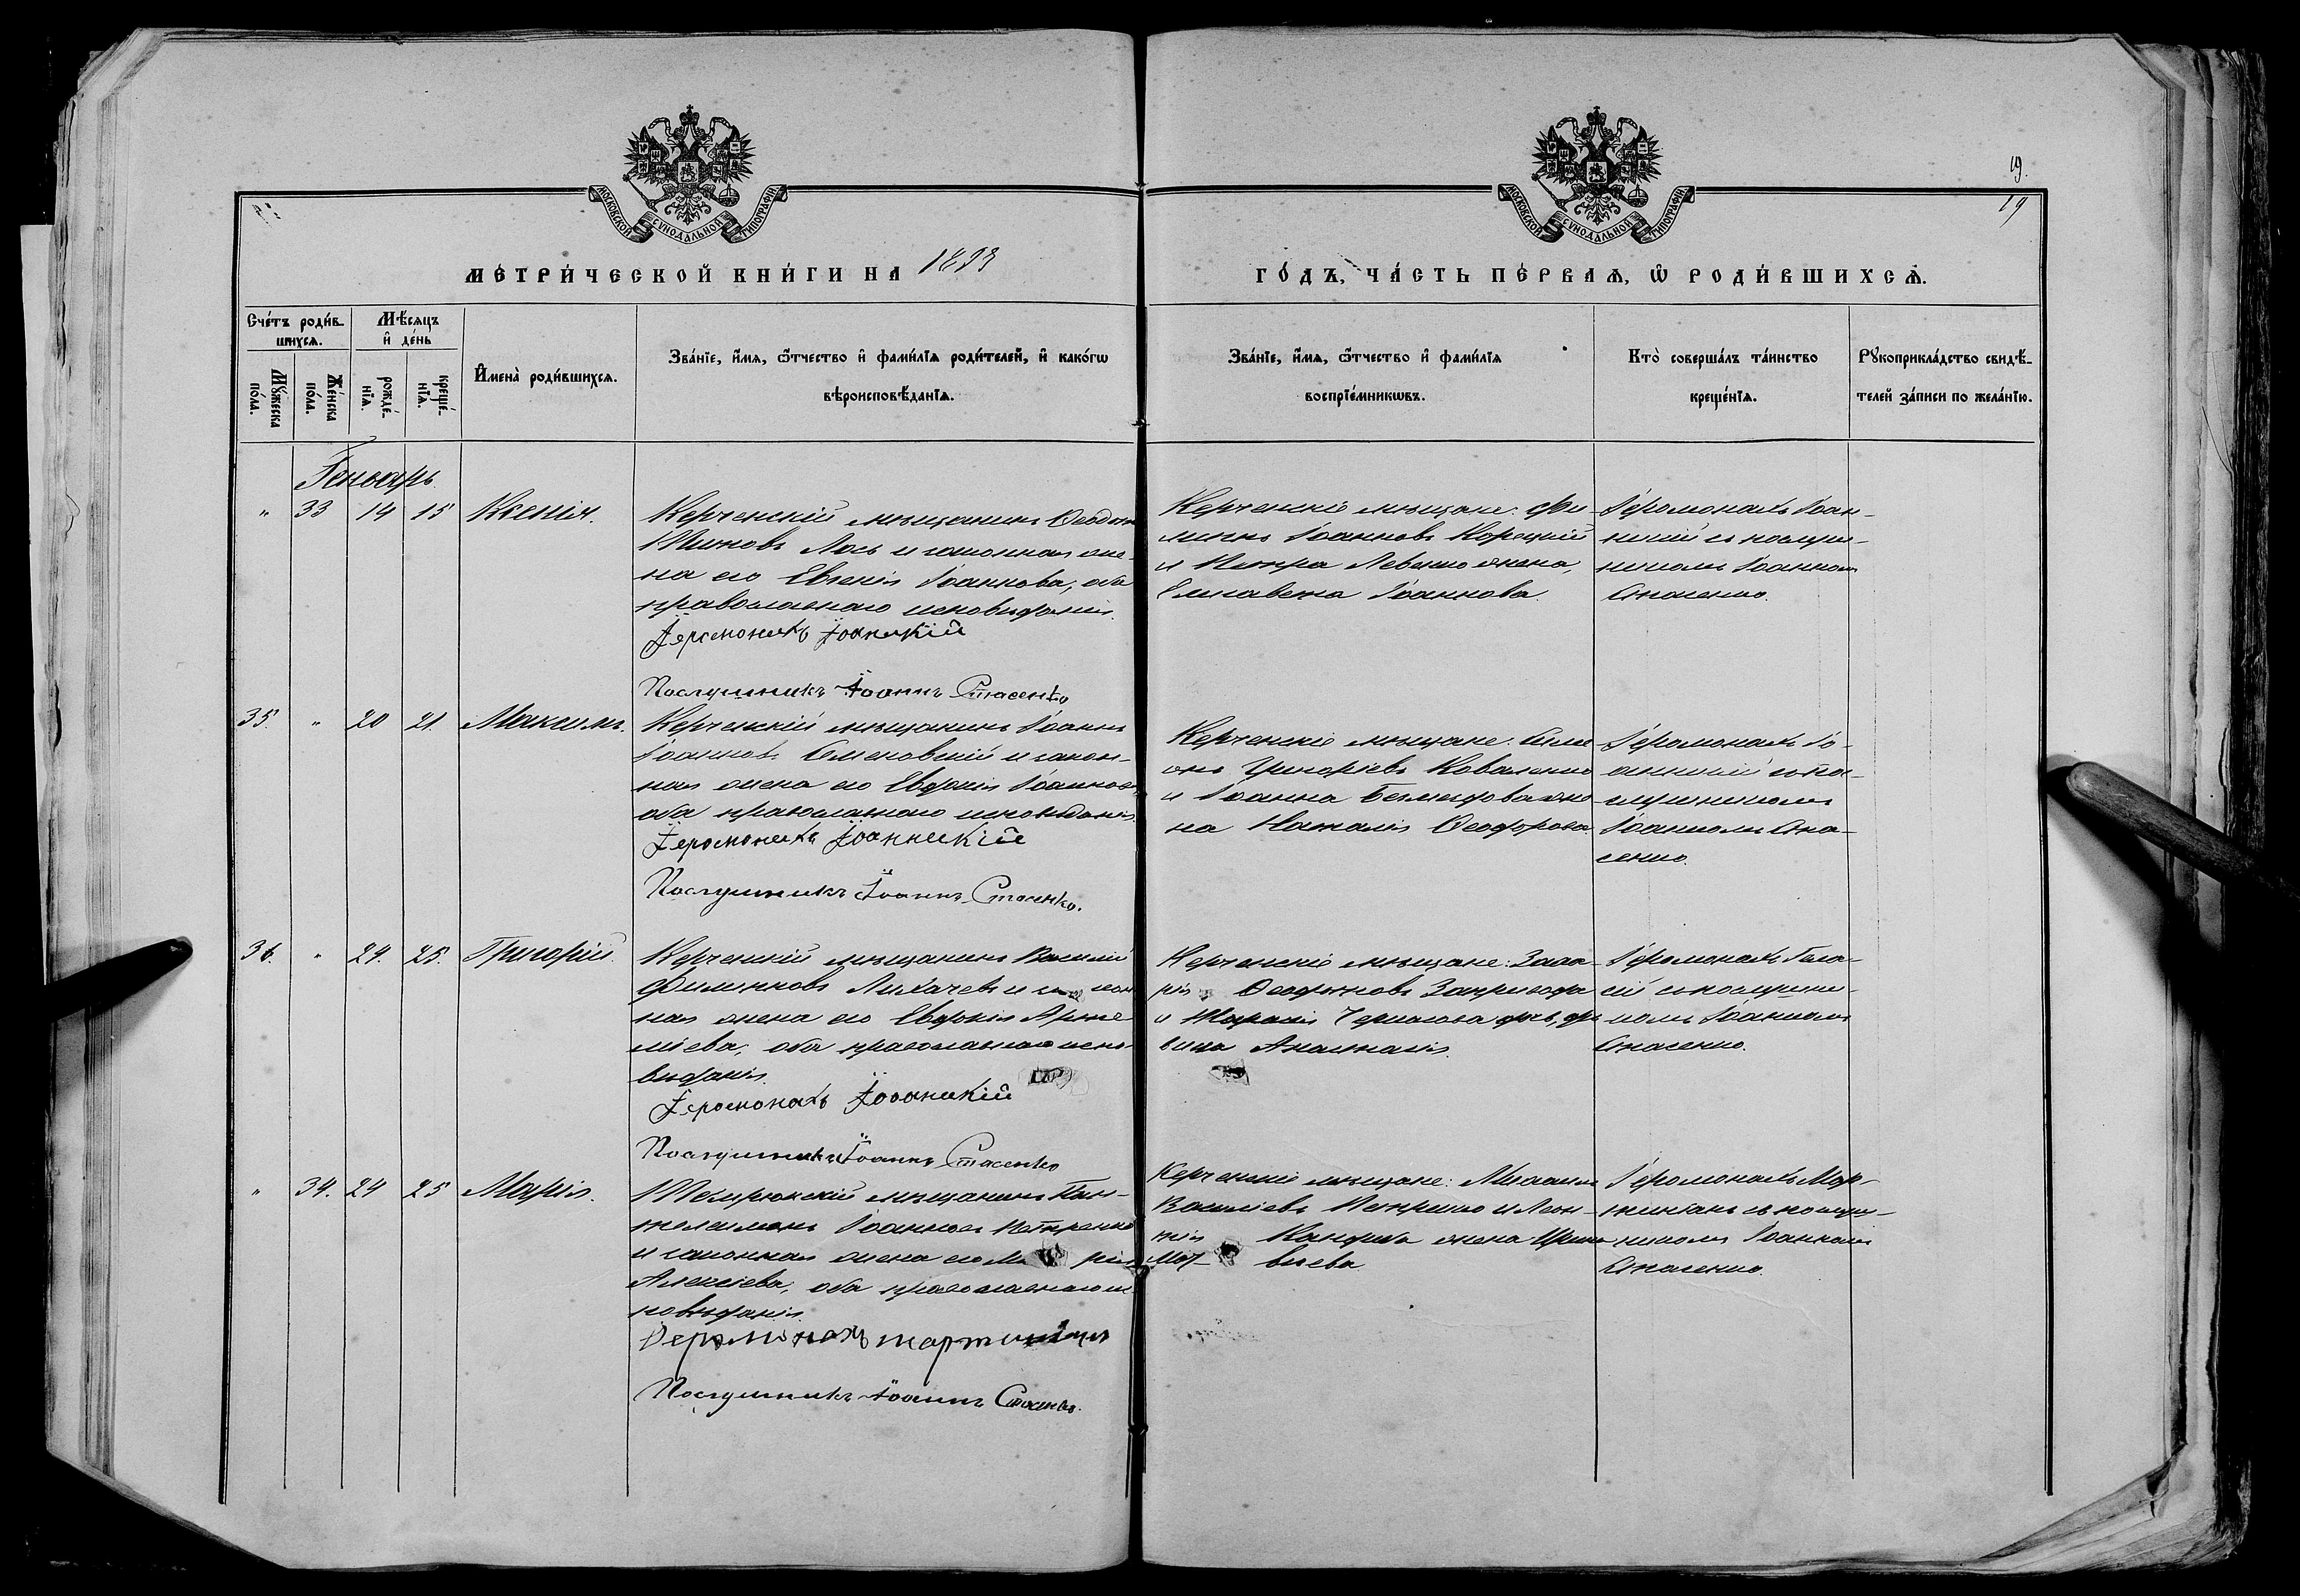 МОСКОВСКОЙ СУНОДАЛЬНОЙ ТИПОГРАФІИ
МОСКОВСКОЙ СУНОДАЛЬНОЙ ТИПОГРАФІИ
19.
19
МЕТРИ́ЧЕСКОЙ КНИ́ГИ НА 1893
ГО́ДЪ, ЧА́СТЬ ПЕ́РВАѦ, Ѡ҆ РОДИ́ВШИХСѦ.
Сче́тъ роди́в-
шихсѧ.
Мѣ́сѧцъ
и҆ де́нь
Мꙋ́жеска
по́ла.
Же́нска
по́ла.
рожде́-
нїѧ.
креще́-
нїѧ.
И҆мена̀ роди́вшихсѧ.
Зва́нїе, и҆́мѧ, ѻ҆́тчество и҆ фами́лїѧ роди́телей, и҆ како́гѡ
вѣроисповѣ́данїѧ.
Зва́нїе, и҆́мѧ, ѻ҆́тчество и҆ фами́лїѧ
воспрїе́мникѡвъ.
Кто̀ соверша́лъ та́инство
креще́нїѧ.
Рꙋкоприкла́дство свидѣ́-
телей за́писи по жела́нїю.
Генварь
" 33 14 15 Ксенія.
Керченскій мѣщанинъ
Лось и законная же-
на его Евгенія Іоаннова, оба
православнаго исповѣданія.
Іеромонахъ Іоаникій
Послушникъ Іоаннъ Стасенко
Керченскіе мѣщане: Фи-
липпъ Іоанновъ Корецкій
и Петра жена,
Елисавета Іоаннова.
Іеромонахъ Іоан-
никій съ послуш-
никомъ Іоанномъ
Стасенко.
35. " 20 21. Максимъ.
Керченскій мѣщанинъ Іоаннъ
Іоанновъ Семеновскій и закон-
ная жена его Евдокія Іоаннова
оба православнаго исповѣданія.
Іеромонахъ Іоанникій
Послушникъ Іоаннъ Стасенко.
Керченскіе мѣщане: Симе-
онъ Григоріевъ Коваленко
и Іоанна же-
на Наталія Ѳеодорова.
Іеромонахъ Іо-
анникій съ по-
слушникомъ
Іоанномъ Ста-
сенко.
36. " 24. 25. Григорій.
Керченскій мѣщанинъ Василій
Филипповъ Лихачевъ и закон
ная жена его Евдокія Арте-
міева, оба православнаго испо-
вѣданія.
Іеромонахъ Іоаникій
Послушникъ Іоаннъ Стасенко
Керченскіе мѣщане: Заха-
рія
и дѣ-
вица Анастасія.
Іеромонахъ
съ послушни-
комъ Іоанномъ
Стасенко.
" 34. 24 25 Марія.
Темрюкскій мѣщанинъ Пан-
телеимонъ Іоанновъ Петренко
и законная жена его Ма рія
Алексіева, оба православнаго ис
повѣданія.
Іеромонахъ мартиніанъ
Послушникъ Іоаннъ Стасенко.
Керченскіе мѣщане: Михаилъ
Василіевъ Петренко и Леон-
тія жена Ирина
Мат- вѣева
Іеромонахъ Мар-
тиніанъ съ послуш-
никомъ Іоанномъ
Стасенко.